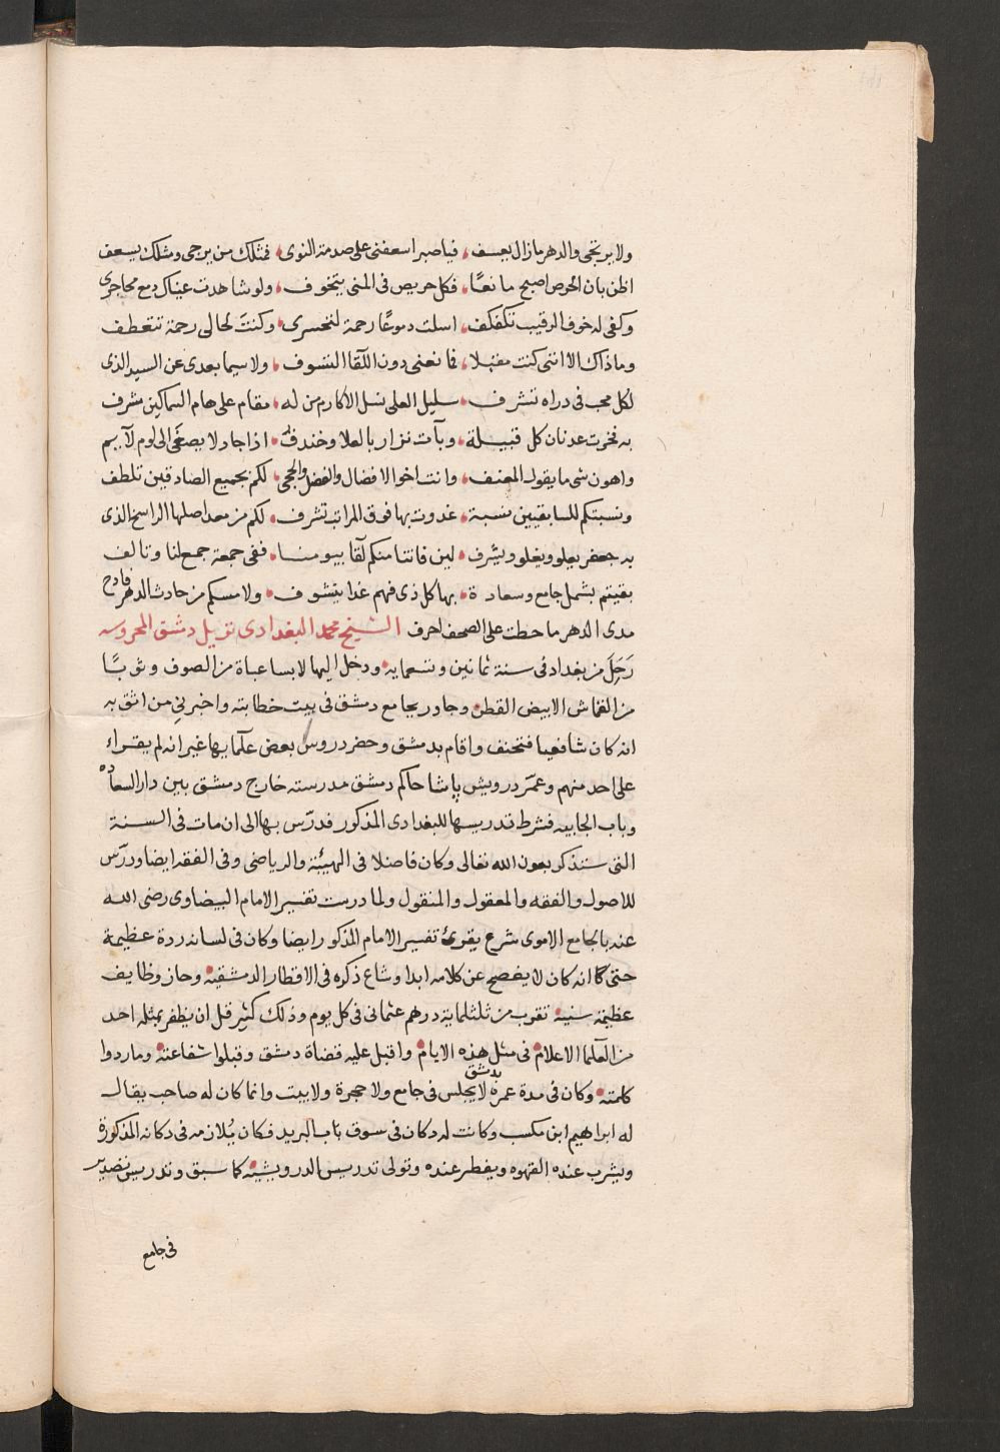 ولا يرتجى والدهر ما زال يعسف، فيا صبر اسعفنى على صدمة النوى، فمثلك من يرجى ومثلك يسعف
اظن بان الحرص اصبح مانعًا، فكل حريص فى المنى يتخوف، ولو شاهدت عيناك دمع محاجرى
وكفى له خوف الرقيب تكفكف، اسلت دموعًا رحمة لتحسرى، وكنت لحالى رحمة تتعطف
وما ذاك الا اننى كنت مقبلا، فما نعنى دون اللقا التسوف، ولا سيما بعدى عن السيد الذى
لكل محب فى دراه تشرف، سليل العلى نسل الاكارم من له، مقام على هام السماكين مشرف
به فخرت عدنان كل قبيلة، وبآت نزار بالعلا وخندف، اذا جاد لا يصغى الى لوم لآيم
واهون شى ما يقول المعنف، وانت اخو الافضال والفضل والحجى، لكم بجميع الصادقين تلطف
ونسبتكم للسابقيين نسبة، غدوت بها فوق المراتب تشرف، لكم من معد اصلها الراسخ الذى
به جعفر يعلو ويغلو ويشرف، لين فاتنا منكم لقا بيومنا، ففى جمعة جمع لنا وتالف
بقيتم بشمل جامع وسعادة، بها كل ذى فهم غدا يتشوف، ولا مسكم من حادث الدهر فادح
مدى الدهر ما حطت على الصحف احرف الشيخ محمد البغدادى نزيل دمشق المحروسه
رَحَلَ من بغداد فى سنة ثمانين وتسعمايه، ودخل اليها لابسا عباة من الصوف وثوبًا
من القماش الابيض القطن وجاور بجامع دمشق فى بيت خطابته واخبرنى من اثق به
انه كان شافعيا فتحنف واقام بدمشق وحضر دروس بعض علمايها غير انه لم يقراء
على احد منهم وعمّر درويش پاشا حاكم دمشق مدرسته خارج دمشق بين دار السعاده
وباب الجابيه فشرط تدريسها للبغدادى المذكور فدرّس بها الى ان مات فى السنة
التى ستذكر بعون الله تعالى وكان فاضلا فى الهيئة والرياضى وفى الفقه ايضا ودرّس
للاصول والفقه والمعقول والمنقول ولما درست تفسير الامام البيضاوى رضى الله
عنه بالجامع الاموى شرع يقرئ تفسير الامام المذكور ايضا وكان فى لسانه ردة عظيمة
حتى كانه كان لا يفصح عن كلامه ابدا وشاع ذكره فى الاقطار الدمشقيه وحاز وظايف
عظيمة سنية تقرب من ثلثماية درهم عثمانى فى كل يوم وذلك كثير قل ان يظفر بمثله احد
من العلما الاعلام فى مثل هذه الايام واقبل عليه قضاة دمشق وقبلوا شفاعته وما ردوا
كلمته وكان فى مدة عمره بدمشق لا يجلس فى جامع ولا حجرة ولا بيت وانما كان له صاحب يقال
له ابراهيم ابن مكسب وكانت له دكان فى سوق باب البريد فكان يُلازمه فى دكانه المذكورة
ويشرب عنده القهوه ويفطر عنده وتولى تدريس الدرويشيه كما سبق وتدريس تصدير
فى جامع